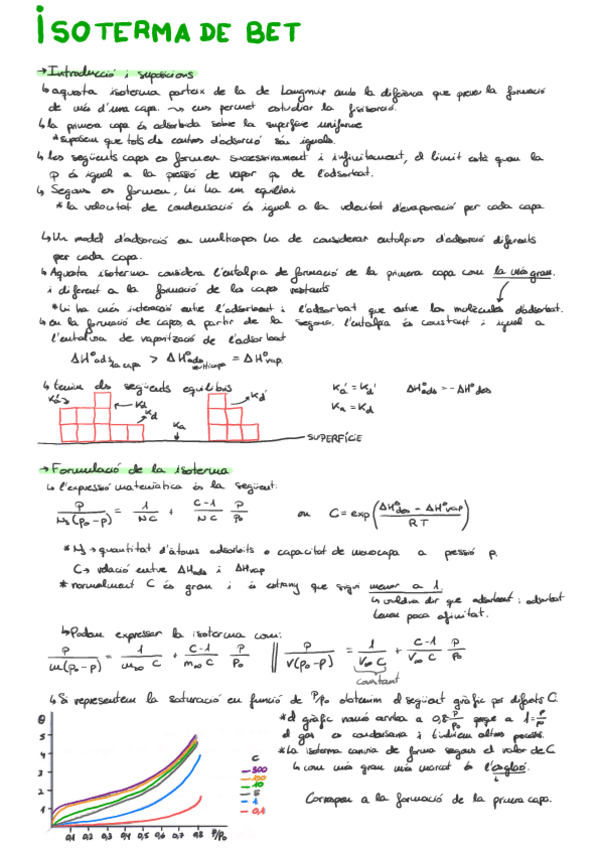 ISOTERMA DE BET
→Introducció i suposicions
↳aquesta isoterma parteix de la de Langmuir amb la diferència que preveu la formació
de més d'una capa. ⇝ ens permet estudiar la fisisorció.
↳la primera capa és adsorbida sobre la superfície uniforme
*suposem que tots els centres d'adsorció són iguals.
↳les següents capes es formen successivament i infinitament, el límit està quan la
p és igual a la pressió de vapor p₀ de l'adsorbat.
↳Segons es formen, hi ha un equilibri
*la velocitat de condensació és igual a la velocitat d'evaporació per cada capa
↳Un model d'adsorció en multicapes ha de considerar entalpies d'adsorció diferents
per cada capa.
↳Aquesta isoterma considera l'entalpia de formació de la primera capa com la més gran.
i diferent a la formació de les capes restants
*hi ha més interacció entre l'adsorbent i l'adsorbat que entre les molècules d'adsorbat.
↳en la formació de capes, a partir de la segona, l'entalpia és constant i igual a
l'entalpia de vaporització de l'adsorbat
ΔH°ads 1a capa > ΔH°ads multicapa = ΔH°vap.
↳tenim els següents equilibris
Ka' Kd Kd Ka Kd'
Ka' = Kd' ΔH°ads = -ΔH°des
Ka = Kd
SUPERFÍCIE
→Formulació de la isoterma
↳l'expressió matemàtica és la següent:
p/(Ns(p₀-p)) = 1/(NC) + (C-1)/(NC) p/p₀ on C = exp((ΔH°des - ΔH°vap)/(RT))
*Ns → quantitat d'àtoms adsorbits o capacitat de monocapa a pressió p.
C → relació entre ΔHads i ΔHvap
*normalment C és gran i és estrany que sigui menor a 1.
↳voldria dir que adsorbent i adsorbat
tenen poca afinitat.
↳Podem expressar la isoterma com:
p/(m(p₀-p)) = 1/(m∞ C) + (C-1)/(m∞ C) p/p₀ || p/(V(p₀-p)) = 1/(V∞ C) + (C-1)/(V∞ C) p/p₀
constant
↳Si representem la saturació en funció de P/P₀ obtenim el següent gràfic per diferents C.
*el gràfic només arriba a 0,8 p/p₀ perquè a 1 = p/p₀
el gas es condensaria i tindríem altres processos.
*La isoterma canvia de forma segons el valor de C
↳com més gran més marcat és l'esglaó.
Correspon a la formació de la primera capa.
θ
5
4
3
2
1
0,1 0,2 0,3 0,4 0,5 0,6 0,7 0,8 P/P₀
C
500
100
10
5
1
0,1